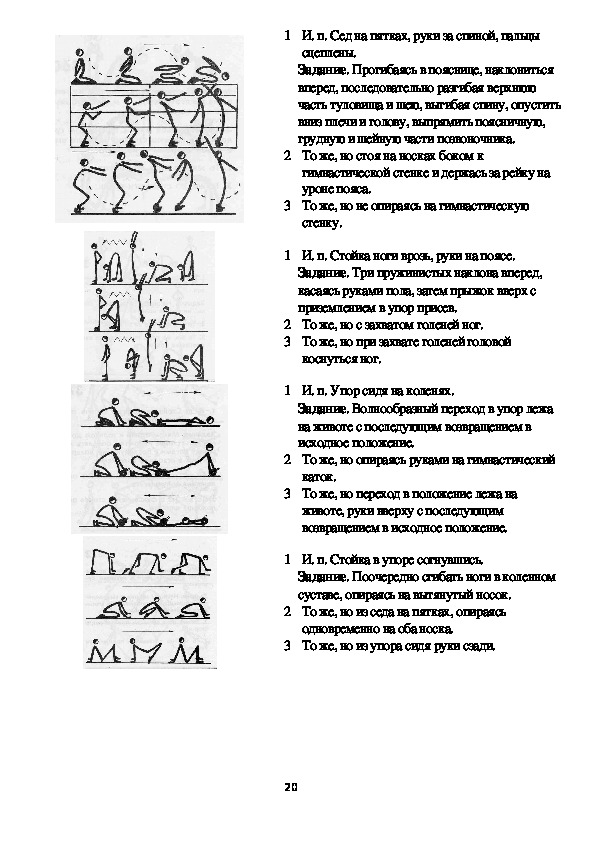 1 И. п. Сед на пятках, руки за спиной, пальцы
сцеплены.
Задание. Прогибаясь в пояснице, наклониться
вперед, последовательно разгибая верхнюю
часть туловища и шею, выгибая спину, опустить
вниз плечи и голову, выпрямить поясничную,
грудную и шейную части позвоночника.
2 То же, но стоя на носках боком к
гимнастической стенке и держась за рейку на
уроне пояса.
3 То же, но не опираясь на гимнастическую
стенку.
1 И. п. Стойка ноги врозь, руки на поясе.
Задание. Три пружинистых наклона вперед,
касаясь руками пола, затем прыжок вверх с
приземлением в упор присев.
2 То же, но с захватом голеней ног.
3 То же, но при захвате голеней головой
коснуться ног.
1 И. п. Упор сидя на коленях.
Задание. Волнообразный переход в упор лежа
на животе с последующим возвращением в
исходное положение.
2 То же, но опираясь руками на гимнастический
каток.
3 То же, но переход в положение лежа на
животе, руки вверху с последующим
возвращением в исходное положение.
1 И. п. Стойка в упоре согнувшись.
Задание. Поочередно сгибать ноги в коленном
суставе, опираясь на вытянутый носок.
2 То же, но из седа на пятках, опираясь
одновременно на оба носка.
3 То же, но из упора сидя руки сзади.
20